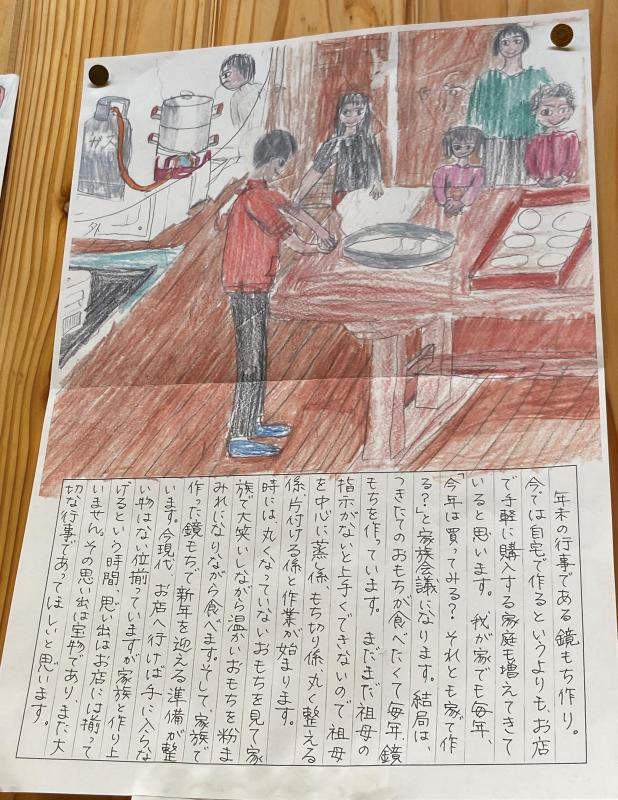 ガス
外
年末の行事である鏡もち作り。
今では自宅で作るというよりも、お店
で手軽に購入する家庭も増えてきて
いると思います。我が家でも毎年、
「今年は買ってみる?それとも家で作
る?」と家族会議になります。結局は、
つきたてのおもちが食べたくて毎年、鏡
もちを作っています。まだまだ祖母の
指示がないと上手くできないので祖母
を中心に蒸し係、もち切り係、丸く整える
係、片付ける係と作業が始まります。
時には、丸くなっていないおもちを見て、家
族で大笑いしながら温かいおもちを粉ま
みれになりながら食べます。そして、家族で
作った鏡もちで新年を迎える準備が整
います。今現代、お店へ行けば手に入らな
い物はない位揃っていますが家族と作り上
げるという時間、思い出はお店には揃って
いません。その思い出は宝物であり、また大
切な行事であってほしいと思います。